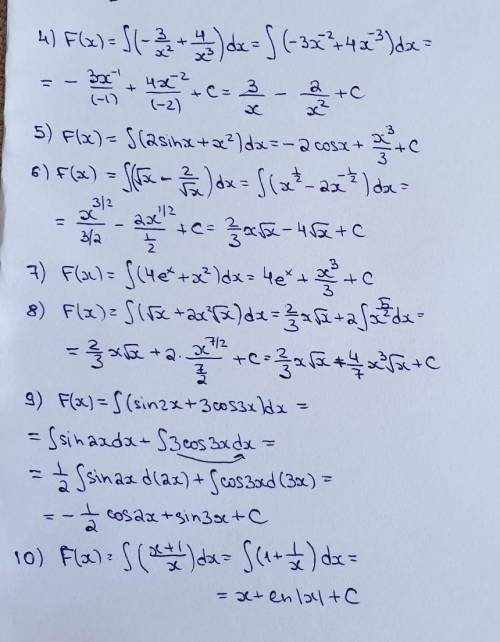 4) F(x) = ∫(-3/x² + 4/x³)dx = ∫(-3x⁻² + 4x⁻³)dx =
= - 3x⁻¹/(-1) + 4x⁻²/(-2) + C = 3/x - 2/x² + C
5) F(x) = ∫(2sinx + x²)dx = -2cosx + x³/3 + C
6) F(x) = ∫(√x - 2/√x)dx = ∫(x^(1/2) - 2x^(-1/2))dx =
= x^(3/2)/(3/2) - 2x^(1/2)/(1/2) + C = 2/3 x√x - 4√x + C
7) F(x) = ∫(4eˣ + x²)dx = 4eˣ + x³/3 + C
8) F(x) = ∫(√x + 2x²√x)dx = 2/3 x√x + 2∫x^(5/2)dx =
= 2/3 x√x + 2 · x^(7/2)/(7/2) + C = 2/3 x√x + 4/7 x³√x + C
9) F(x) = ∫(sin2x + 3cos3x)dx =
= ∫sin2xdx + ∫3cos3xdx =
= 1/2 ∫sin2x d(2x) + ∫cos3xd(3x) =
= - 1/2 cos2x + sin3x + C
10) F(x) = ∫((x+1)/x)dx = ∫(1 + 1/x)dx =
= x + ln|x| + C